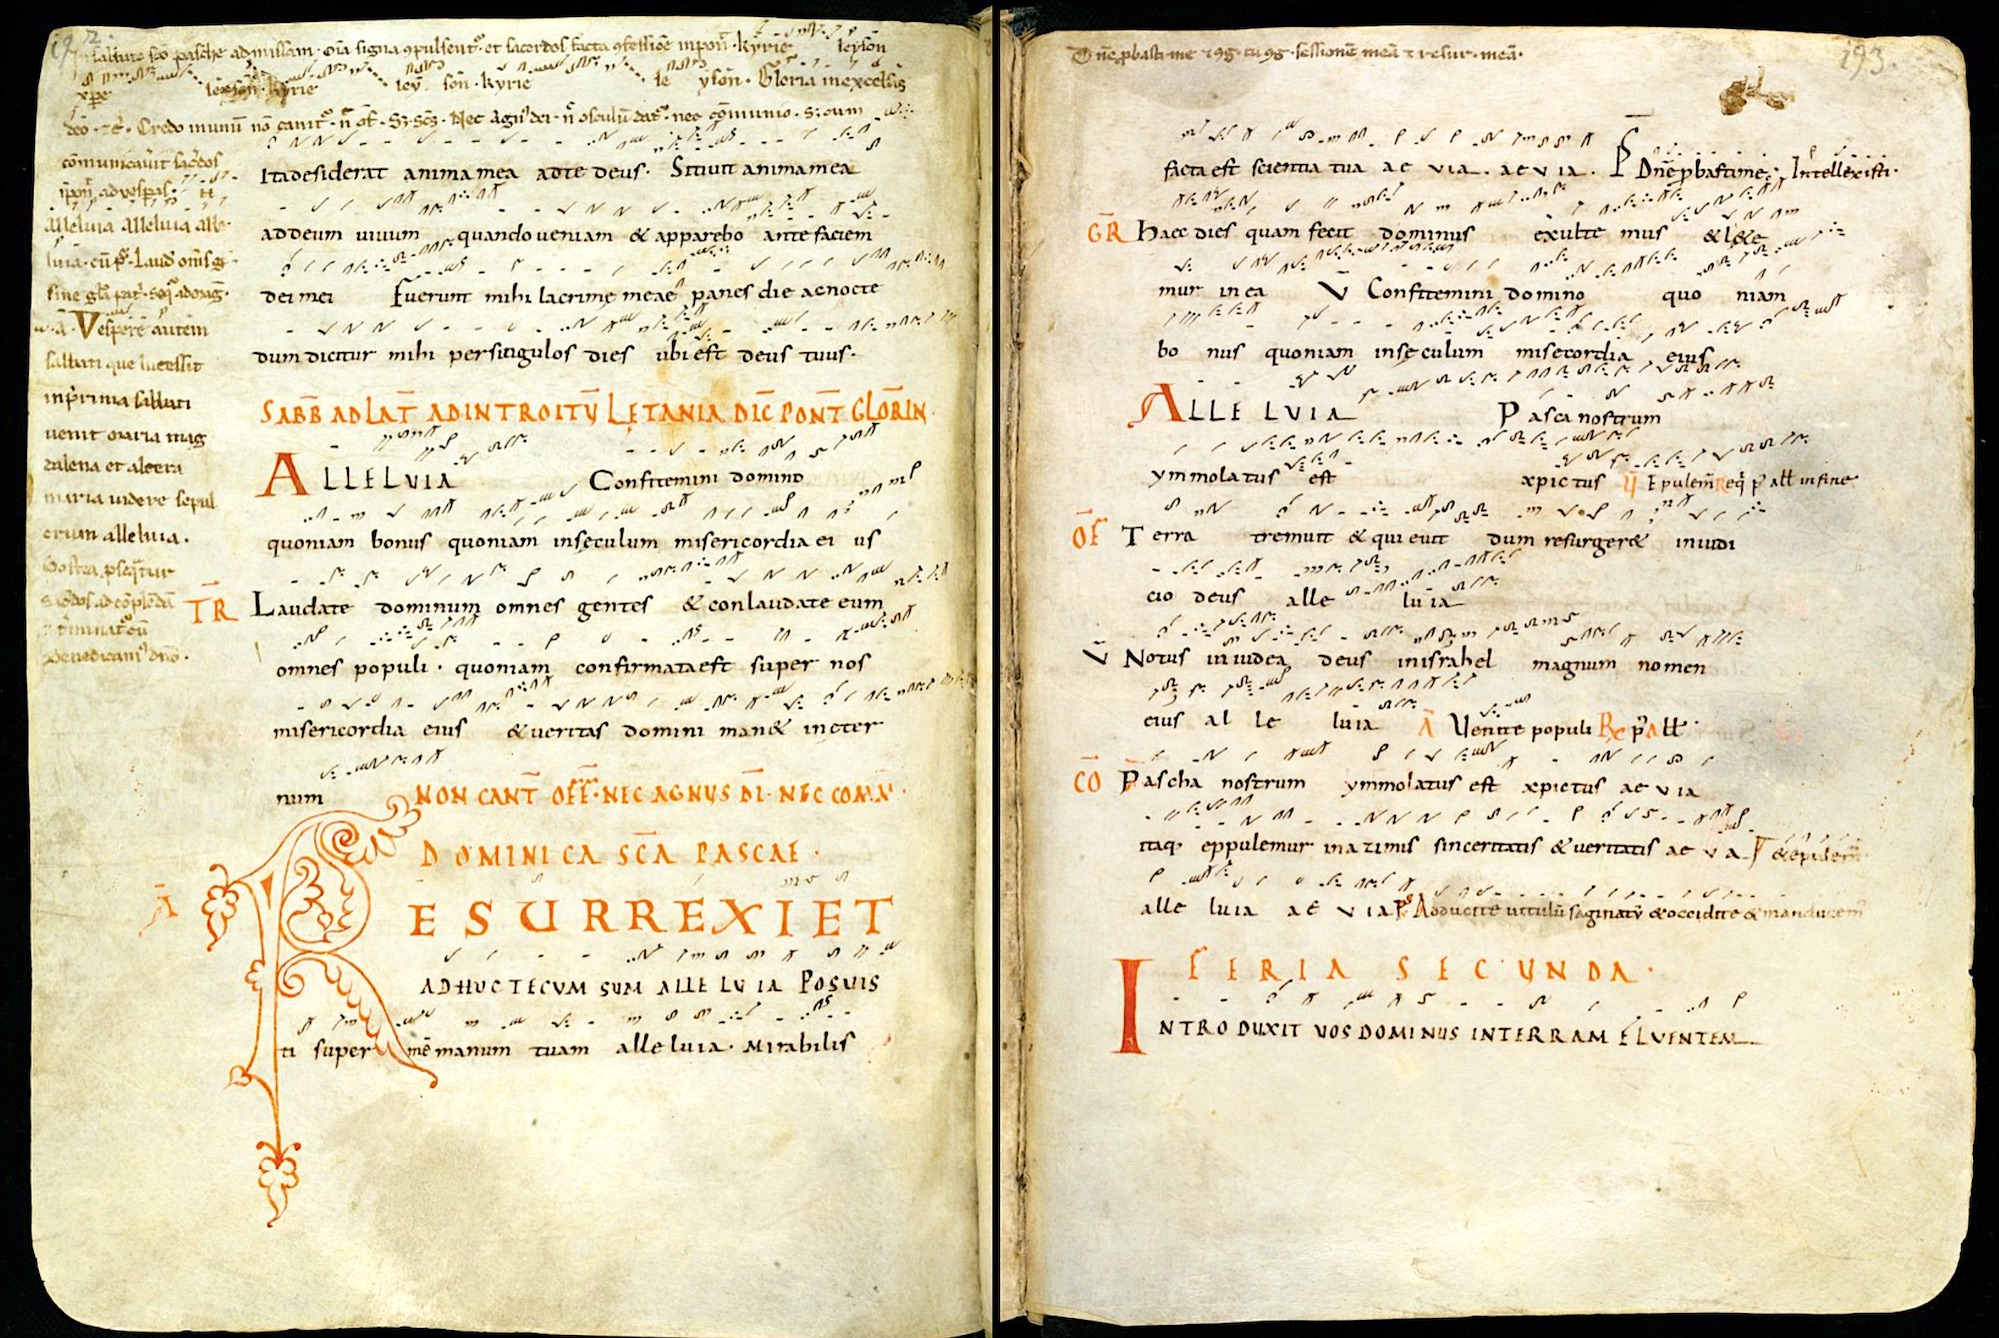 192
sabbato sc̄o pasche ad missam · oīa signa ꝯpulsent᷒ · et sacerdos facta ꝯfessiōe inpoñ · kyrie leyson
xp̄e leyson · kyrie leyson · kyrie le yson · Gloria in excelsis
deo · Credo in unū nō canit᷒ · Nec agn᷒ dei · n̄ osculū dat᷒ · nec cōmunio · S; cum
cōmunicauit sac̄dos
ad uesꝑas ·
alleluia alleluia alle
luia · cū ps̄ · Laud̄ om̄s g̅
sine gl̄a pat̄ ·
A᷒ Vespere autem
sabbati que lucessit
in prima sabbati
uenit maria mag
dalena et altera
maria uidere sepul
crum alleluia ·
Postea ꝑseq̄tur
sac̄dos ad cōplendā
Benedicam᷒ dño ·
Ita desiderat anima mea ad te deus · Sitiuit anima mea
ad deum uiuum quando ueniam & apparebo ante faciem
dei mei Fuerunt mihi lacrimę meae panes die ac nocte
dum dicitur mihi per singulos dies ubi est deus tuus ·
SABB̄ AD LAT̄ AD INTROITŪ LETANIA DIC̄ PONT̄ GLOR̄ IN
ALLELVIA Confitemini domino
quoniam bonus quoniam in seculum misericordia ei us
TR̄ Laudate dominum omnes gentes & conlaudate eum
omnes populi · quoniam confirmata est super nos
misericordia eius & ueritas domini man& in ęter
num NON CANT̄ OFF̄ · NEC AGNUS DĪ · NEC COM̄
DOMINICA SC̄A PASCAE ·
Ā RESURREXI ET
ADHUC TECVM SUM ALLELVIA POSUIS
ti super mē manum tuam alleluia · Mirabilis
193
Dñe ꝓbasti me & ꝯg · tu ꝯg · sessionē meā & resur · meā ·
facta est scientia tua ae via · aevia · Ps̄ Dñe ꝓbasti me · Intellexisti ·
GR̄ Haec dies quam fecit dominus exulte mus & l&e
mur in ea V̄ Confitemini domino quo niam
bo nus quoniam in sęculum misericordia eius
ALLELVIA Pasca nostrum
ymmolatus est xpictus V̄ Epulem̄
OF̄ Terra tremuit & quieuit dum resurger& in iudi
cio deus alle luia
V̄ Notus in iudea deus in israhel magnum nomen
eius al le luia Ā Venite populi
CŌ Pascha nostrum ymmolatus est xpictus ae via
itaq· eppulemur in azimis sinceritatis & ueritatis ae v a
alle luia ae via Adducite uitulū saginatū & occidite & manducem᷒
FERIA SECUNDA ·
INTRODUXIT VOS DOMINUS IN TERRAM FLUENTEM